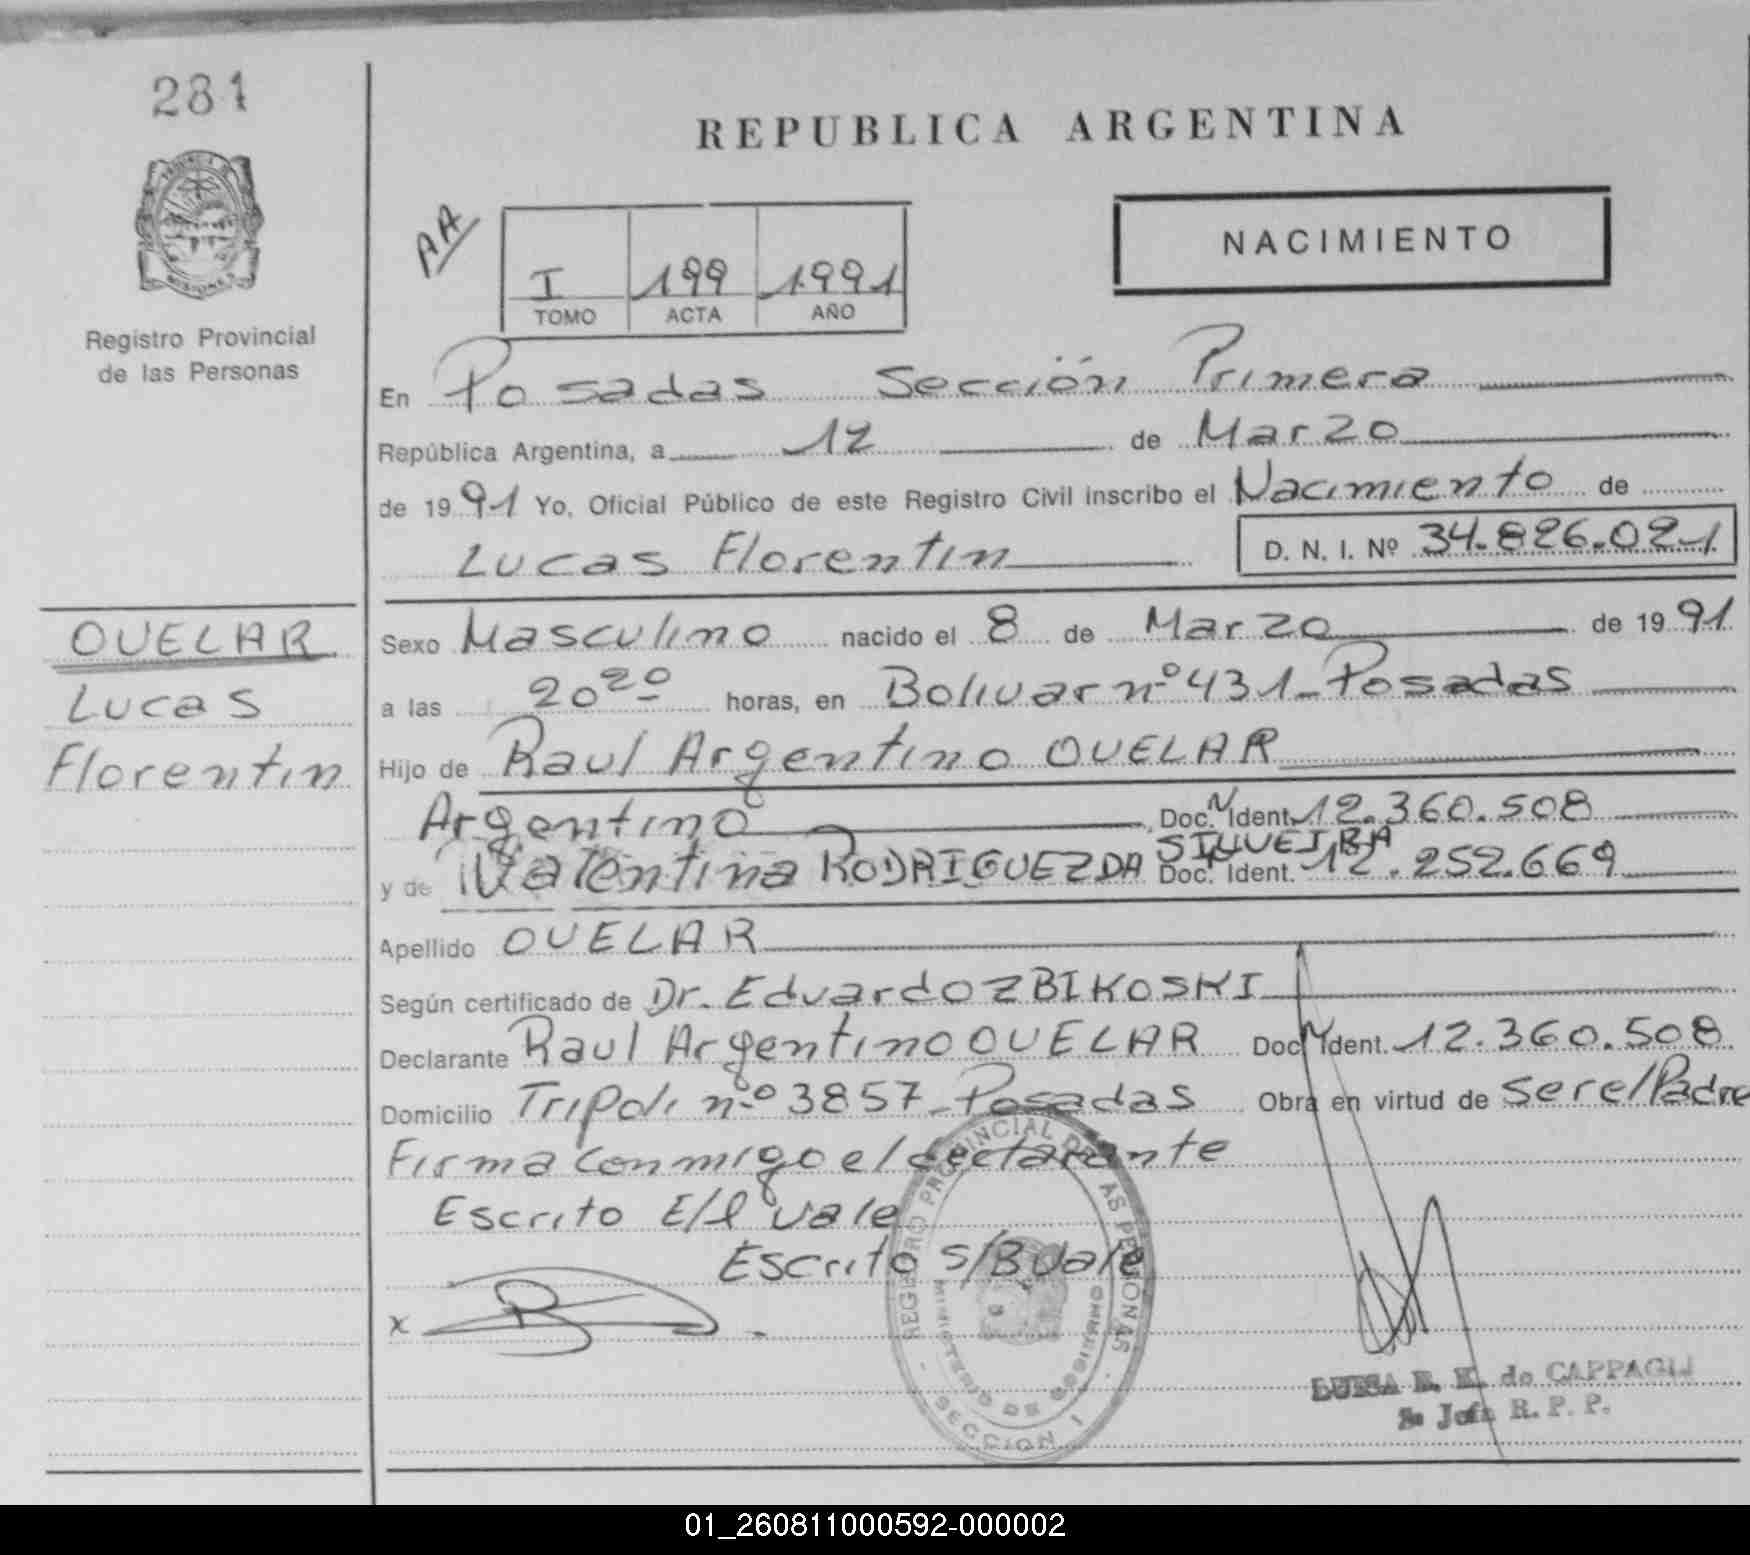 281
PROVINCIA DE
MISIONES
Registro Provincial
de las Personas
OVELAR
Lucas
Florentin
REPUBLICA ARGENTINA
AA
NACIMIENTO
I 199 1991
TOMO ACTA AÑO
En Posadas Sección Primera
República Argentina, a 12 de Marzo
de 1991 Yo, Oficial Público de este Registro Civil inscribo el Nacimiento de
Lucas Florentin D. N. I. Nº 34.826.021
Sexo Masculino nacido el 8 de Marzo de 1991
a las 20 20 horas, en Bolivar nº 431 - Posadas
Hijo de Raul Argentino OVELAR
Argentino Doc. N Ident. 12.360.508
SILVEIRA
y de Valentina RODRIGUEZ DA Doc. Ident. 12.252.669
Apellido OVELAR
Según certificado de Dr. Eduardo ZBIKOSKI
Declarante Raul Argentino OVELAR Doc N Ident. 12.360.508
Domicilio Tripoli nº 3857 - Posadas Obra en virtud de ser el Padre
Firma conmigo el declarante
Escrito E/l vale
Escrito S/B Vale
x
REGISTRO PROVINCIAL DE LAS PERSONAS
MINISTERIO DE GOBIERNO
SECCION I
de CAPPAGLI
Jefa R. P. P.
01_260811000592-000002